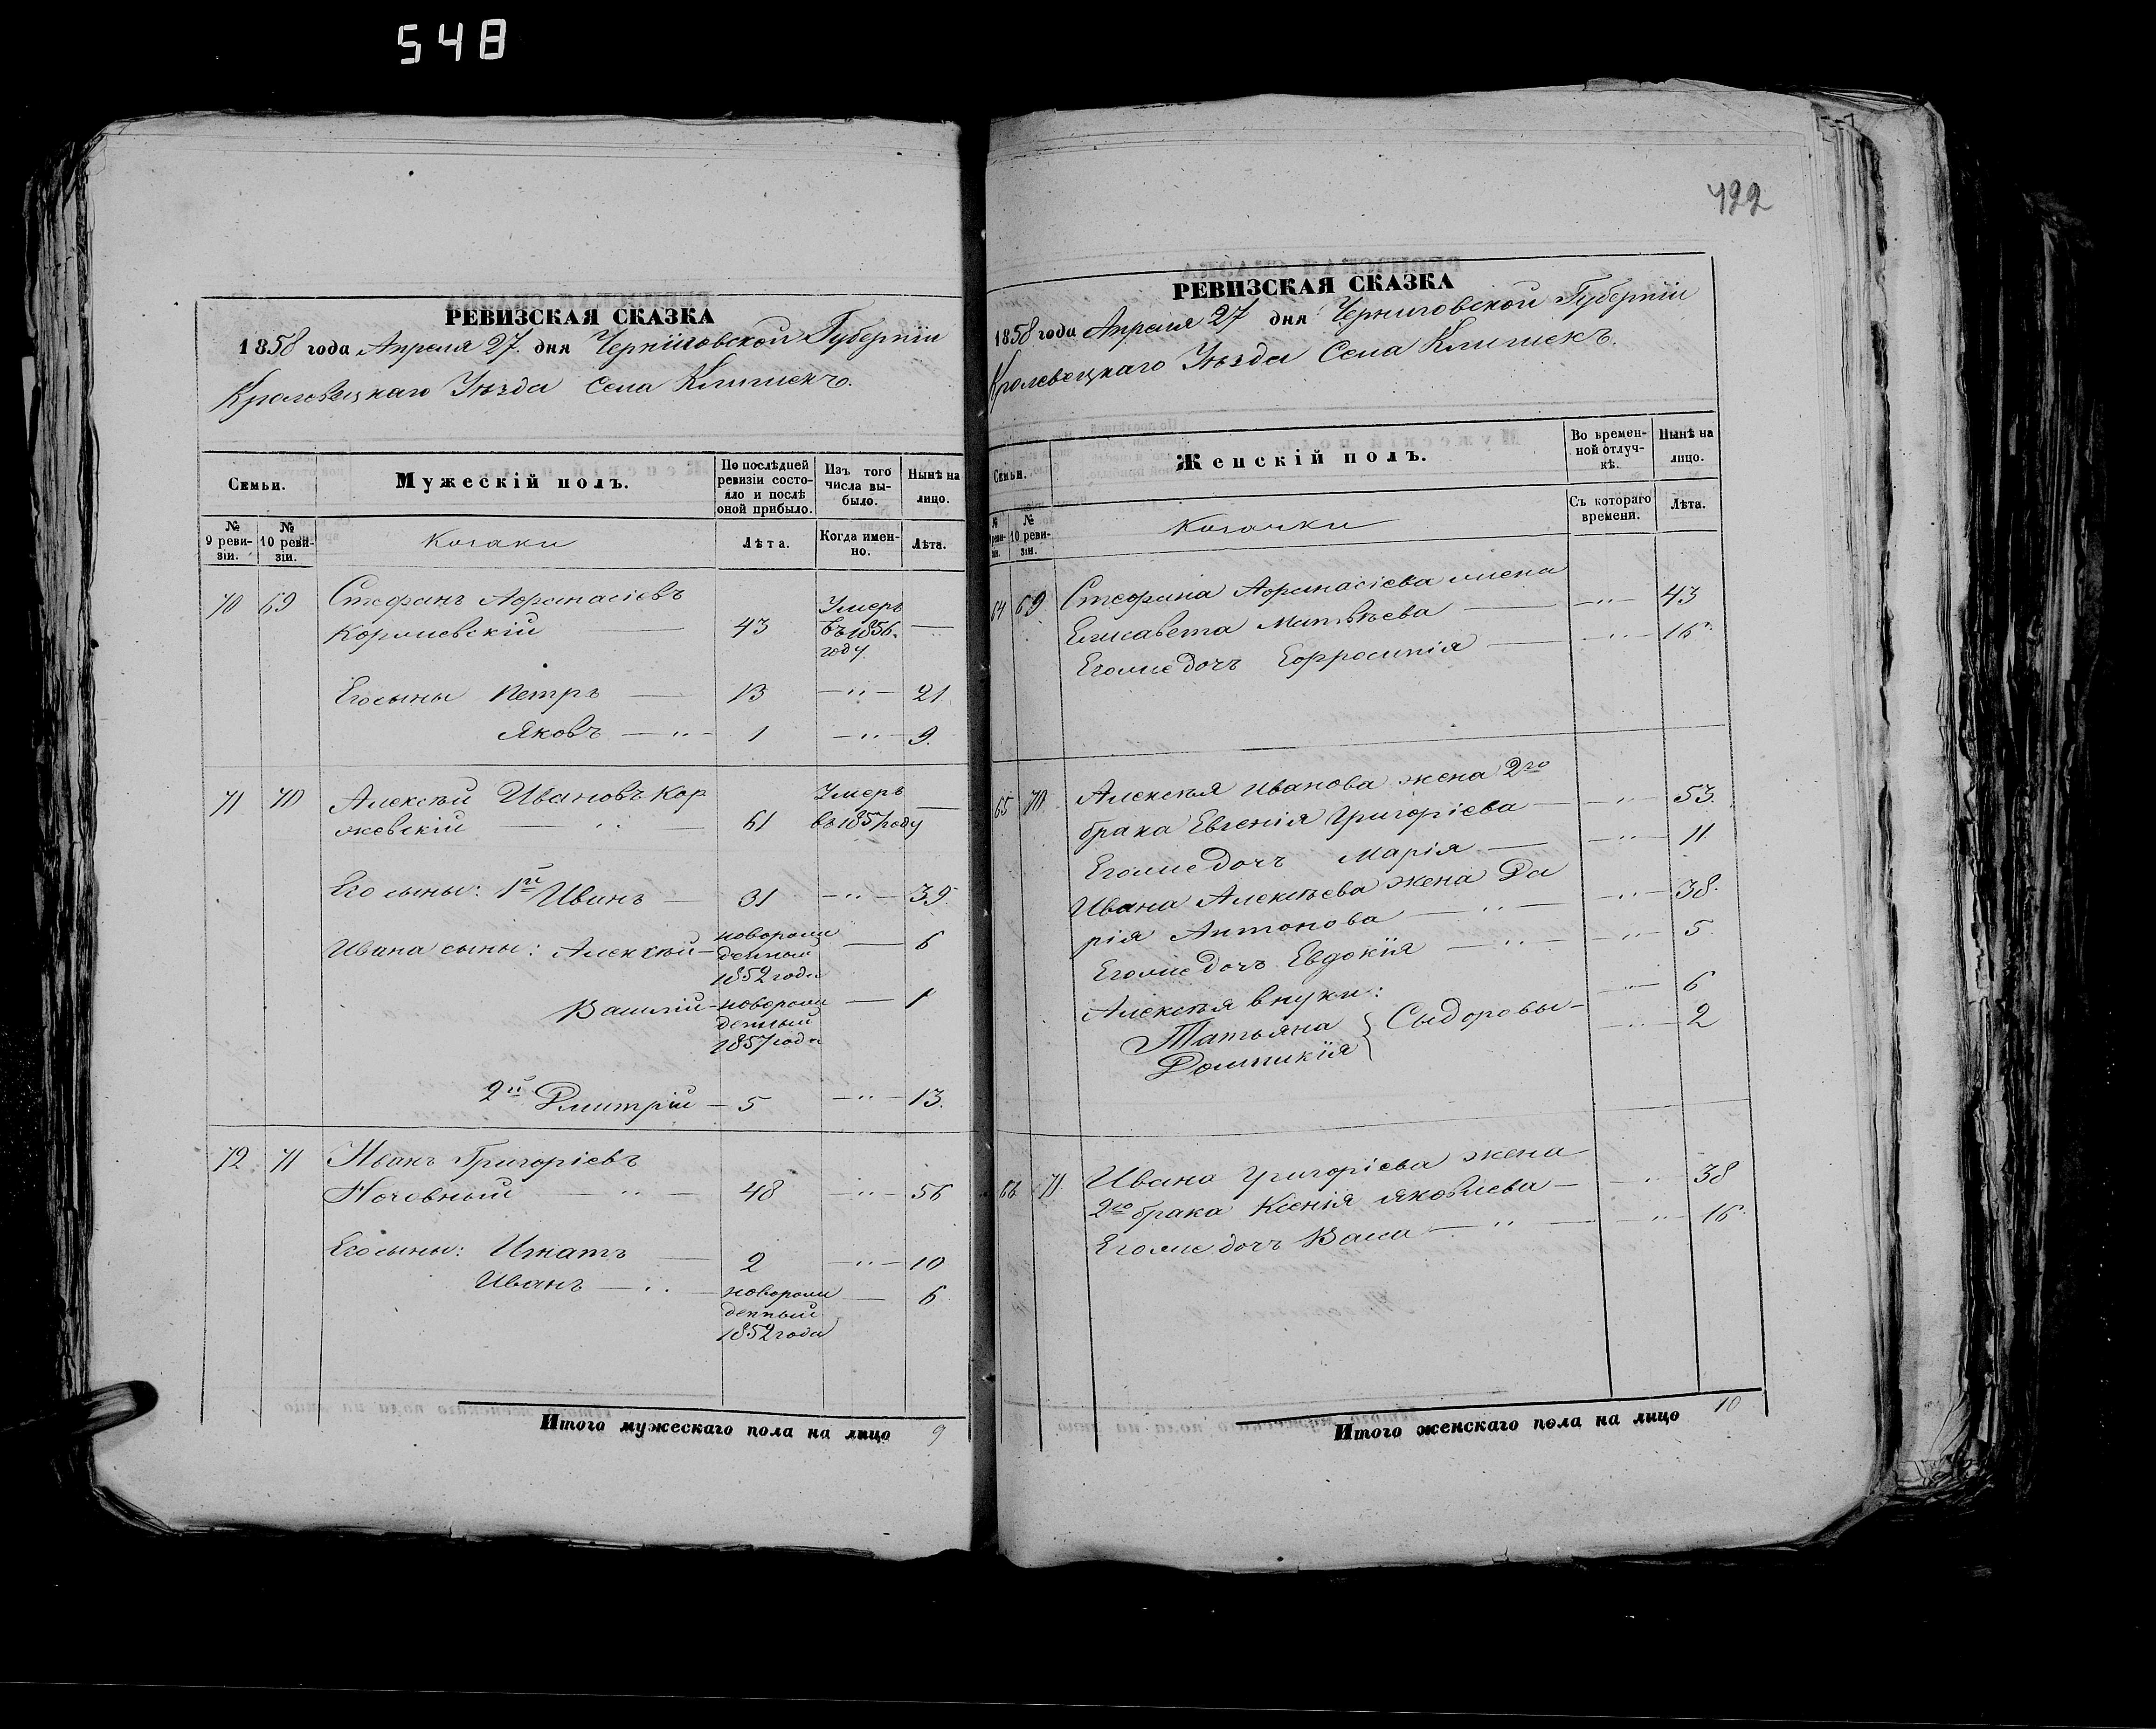 548
РЕВИЗСКАЯ СКАЗКА
1858 года Апреля 27. дня Черниговской Губерніи
Кролевецкаго Уѣзда Села Клишекъ.
Семьи.
Мужескій полъ.
По послѣдней ревизіи состояло и послѣ оной прибыло.
Изъ того числа выбыло.
Нынѣ на лицо.
№ 9 ревизіи.
№ 10 ревизіи.
Козаки
Лѣта.
Когда именно.
Лѣта.
70 69 Стефанъ Афанасіевъ
Коржевскій — 43 Умеръ въ 1856. году. —
Его сыны Петръ — 13 — " — 21.
Яковъ — " — 1 — " — 9.
71 70 Алексѣй Ивановъ Кор
жевскій — " — 61 Умеръ въ 1857 году —
Его сыны: 1й Иванъ — 31 — " — 39.
Ивана сыны: Алексѣй — новорожденный 1852 года — 6
Василій — новорожденный 1857 года — 1
2й Дмитрій — 5 — " — 13.
72 71 Иванъ Григоріевъ
Ночовный — " — 48 — " — 56
Его сыны: Игнатъ — 2 — " — 10
Иванъ — " — новорожденный 1852 года — 6
Итого мужескаго пола на лицо 9
422
РЕВИЗСКАЯ СКАЗКА
1858 года Апреля 27 дня Черниговской Губерніи
Кролевецкаго Уѣзда Села Клишекъ.
Семьи.
Женскій полъ.
Во временной отлучкѣ.
Нынѣ на лицо.
№ 10 ревизіи.
Козачки
Съ котораго времени.
Лѣта.
64 69. Стефана Афанасіева жена
Елисавета Матвѣева — " — 43
Егоже дочъ Ефросинія — " — 16.
65 70. Алексѣя Иванова жена 2го
брака Евгенія Григоріева — " — 53.
Егоже дочъ Марія — " — 11.
Ивана Алексѣева жена Да
рія Антонова — " — 38.
Егоже дочъ Евдокія — " — 5.
Алексѣя внуки:
Татьяна } Сыдоровы — " — 6
Домникія — " — 2
66 71. Ивана Григоріева жена
2го брака Ксенія Яковлева — " — 38
Егоже дочъ Васа — " — 16.
Итого женскаго пола на лицо 10